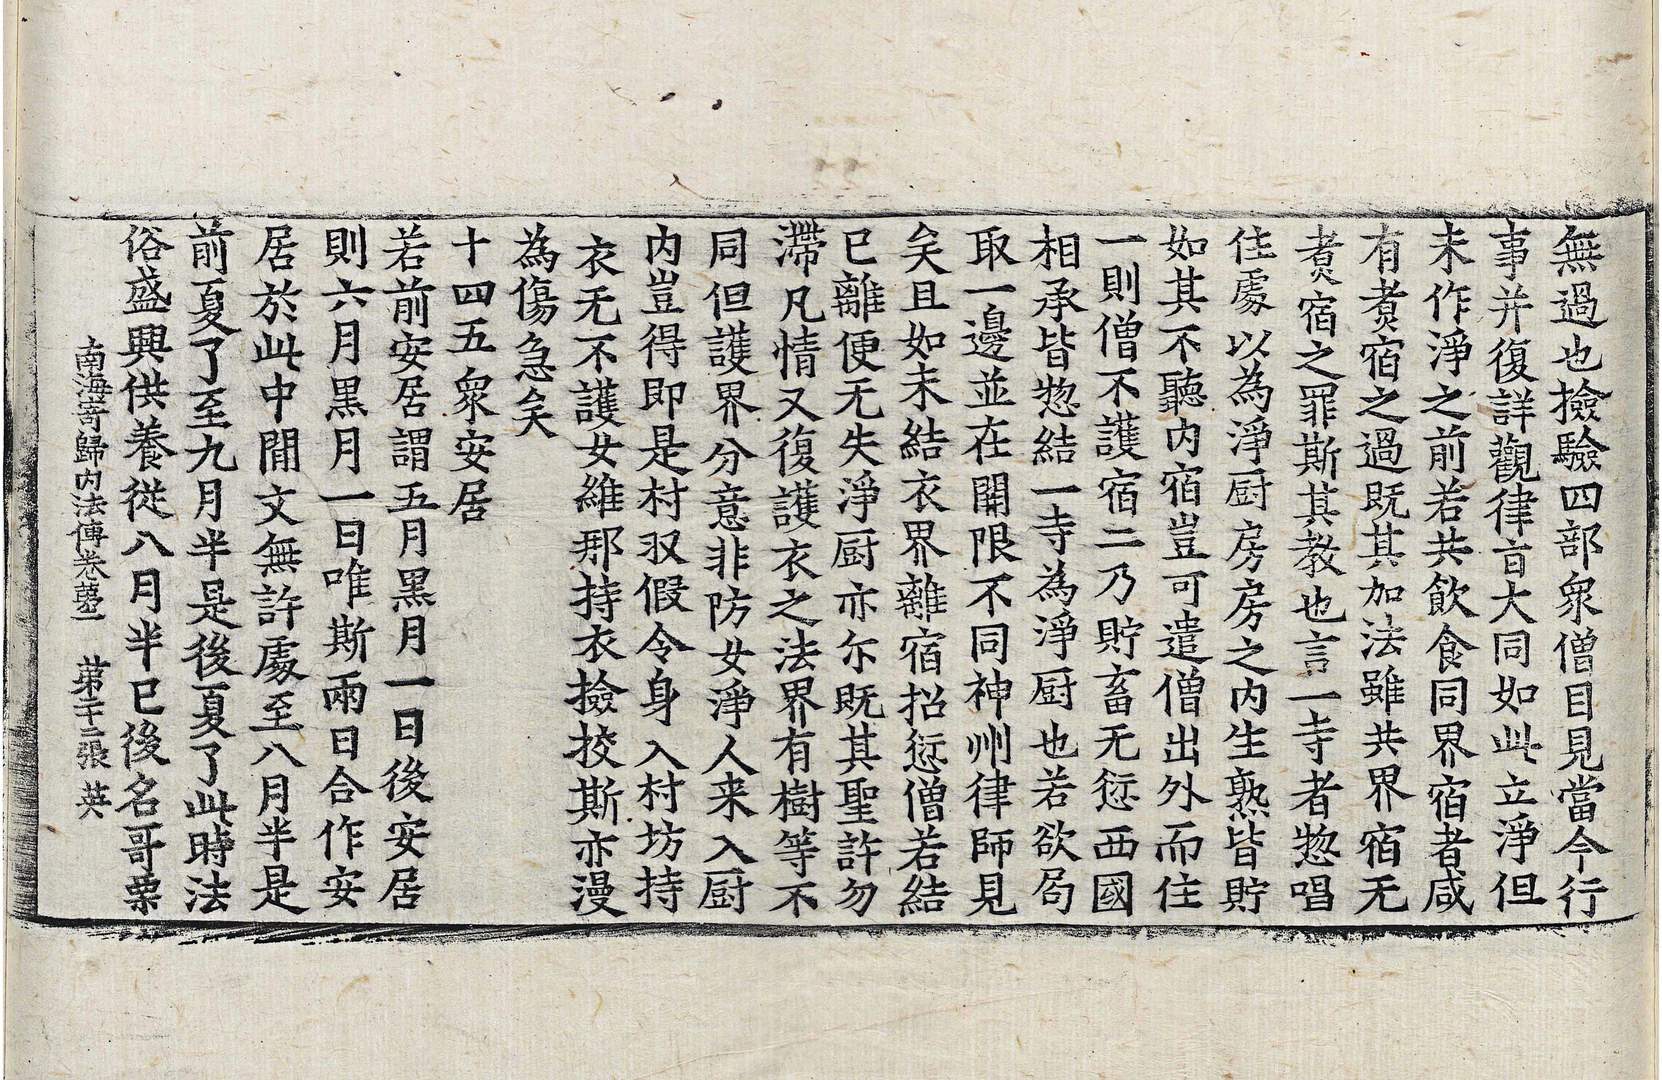 無過也撿驗四部衆僧目見當今行
事并復詳觀律㫖大同如此立淨但
未作淨之前若共飲食同界宿者咸
有煑宿之過既其加法雖共界宿无
煑宿之罪斯其教也言一寺者惣唱
住處以為淨厨房房之内生熟皆貯
如其不聽内宿豈可遣僧出外而住
一則僧不護宿二乃貯畜无愆西國
相承皆惣結一寺為淨厨也若欲局
取一邊並在開限不同神州律師見
矣且如未結衣界離宿招愆僧若結
已離便无失淨厨亦尓既其聖許勿
滯凡情又復護衣之法界有樹等不
同但護界分意非防女淨人来入厨
内豈得即是村収假令身入村坊持
衣无不護女維那持衣撿挍斯亦漫
為傷急矣
十四五衆安居
若前安居謂五月黑月一日後安居
則六月黑月一日唯斯兩日合作安
居於此中間文無許處至八月半是
前夏了至九月半是後夏了此時法
俗盛興供養從八月半已後名哥栗
南海寄歸内法傳卷苐二 苐十二張 英